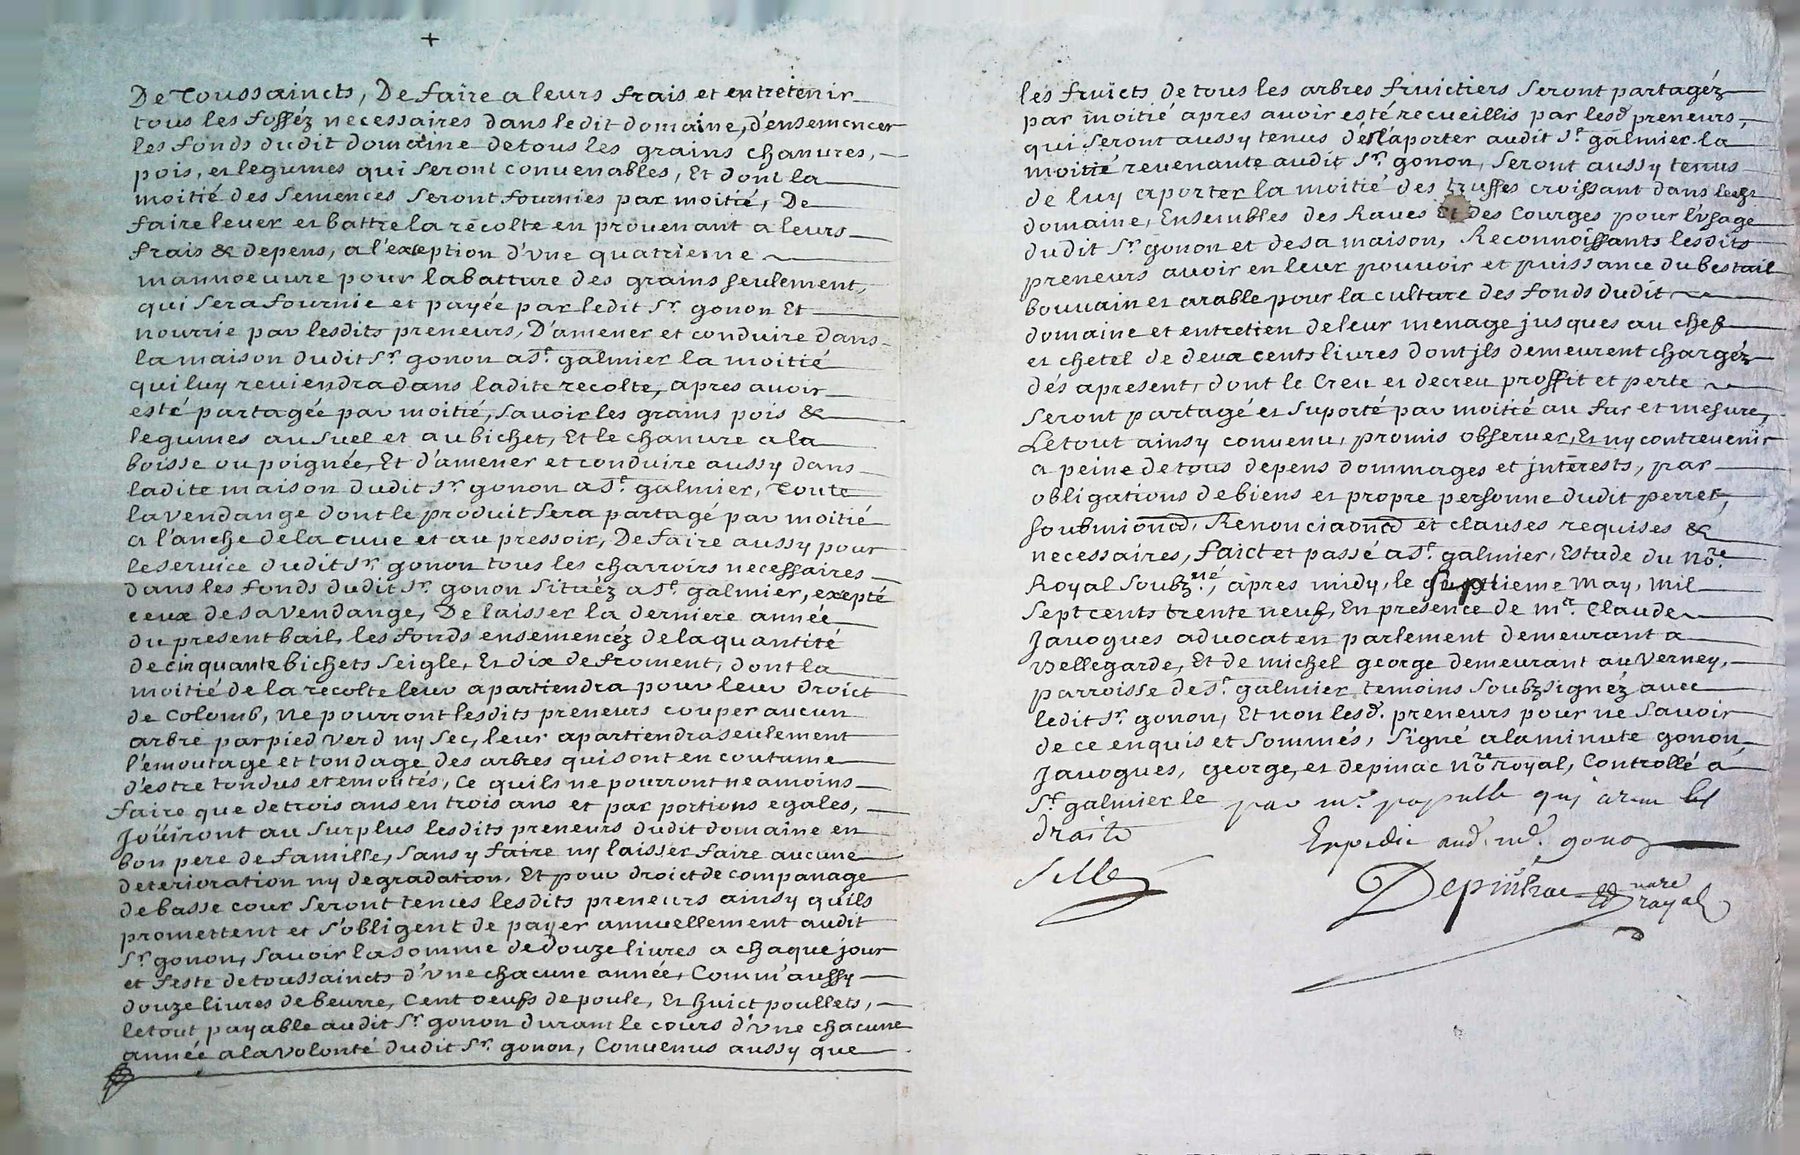 +
De Toussaincts, De faire a leurs frais et entretenir
tous les fosséz necessaires dans ledit domaine, d'ensemencer
les fonds dudit domaine de tous les grains chanvres,
pois, et legumes qui seront convenables, Et dont la
moitié des semences seront fournies par moitié, De
faire lever et battre la récolte en provenant a leurs
frais & depens, a l'exception d'vne quatrieme
mannoeuvre pour la batture des grains seulement,
qui sera fournie et payée par ledit Sr. gonon Et
nourrie par lesdits preneurs, D'amener et conduire dans
la maison dudit Sr. gonon a St. galmier la moitié
qui luy reviendra dans ladite recolte, apres avoir
esté partagée par moitié, savoir les grains pois &
legumes au suel et au bichet, Et le chanvre a la
boisse ou poignée, Et d'amener et conduire aussy dans
ladite maison dudit Sr. gonon a St. galmier, Toute
la vendange dont le produit sera partagé par moitié
a l'anche de la cuve et au pressoir, De faire aussy pour
le service dudit Sr. gonon tous les charroirs necessaires
dans les fonds dudit Sr. gonon situéz a St. galmier, exepté
ceux de sa vendange, De laisser la derniere année
du present bail, les fonds ensemencéz de la quantité
de cinquante bichets seigle, Et dix de froment, dont la
moitié de la recolte leur apartiendra pour leur droict
de Colomb, Ne pourront lesdits preneurs couper aucun
arbre par pied verd ny sec, leur apartiendra seulement
l'émoutage et tondage des arbres qui sont en coutume
d'estre tondus et emoutés, Ce quils ne pourront neamoins
faire que de trois ans en trois ans et par portions egales,
Joüiront au surplus lesdits preneurs dudit domaine en
bon pere de famille, sans y faire ny laisser faire aucune
deterioration ny degradation, Et pour droict de companage
de basse cour seront tenues lesdits preneurs ainsy quils
promettent et s'obligent de payer annuellement audit
Sr. gonon, savoir la somme de douze livres a chaque jour
et feste de toussaincts d'vne chacune année, Comm'aussy
douze livres de beurre, Cent oeufs de poule, Et huict poullets,
le tout payable audit Sr. gonon durant le cours d'vne chacune
année a la volonté dudit Sr. gonon, Convenus aussy que
les fruicts de tous les arbres fruictiers seront partagéz
par moitié apres avoir esté recueillis par lesd. preneurs,
qui seront aussy tenus d'aporter audit Sr. galmier la
moitié revenante audit Sr. gonon, seront aussy tenus
de luy aporter la moitié des truffes croissant dans ledit
domaine, Ensembles des Raves Et des Courges pour l'vsage
dudit Sr. gonon et de sa maison, Reconnoissants lesdits
preneurs avoir en leur pouvoir et puissance du bestail
bouvain et arable pour la culture des fonds dudit
domaine et entretien de leur menage jusques au chef
et chetel de deux cents livres dont jls demeurent chargéz
dés apresent, dont le Creu et decreu proffit et perte
seront partagé et suporté par moitié au fur et mesure,
Le tout ainsy convenu, promis observer, Et ny contrevenir
a peine de tous depens dommages et jnterests, par
obligations de biens et propre personne dudit perret,
soubmionõ, Renonciaonõ et clauses requises &
necessaires, faict et passé a St. galmier, Estude du Nore.
Royal Soubzné, apres midy, le septieme May, Mil
Sept cents trente neuf, En presence de mr. Claude
Javogues advocat en parlement demeurant a
Bellegarde, Et de michel george demeurant au Verney,
parroisse de St. galmier, temoins Soubzsignéz avec
ledit Sr. gonon, Et non lesd. preneurs pour ne savoir
de ce enquis et sommés, Signé a la minute gonon,
Javogues, george, et depinac Nore. royal, Controllé a
St. galmier le par mr. qui a receu les
droits
Expedie aud. gonon
Depinac nore royal